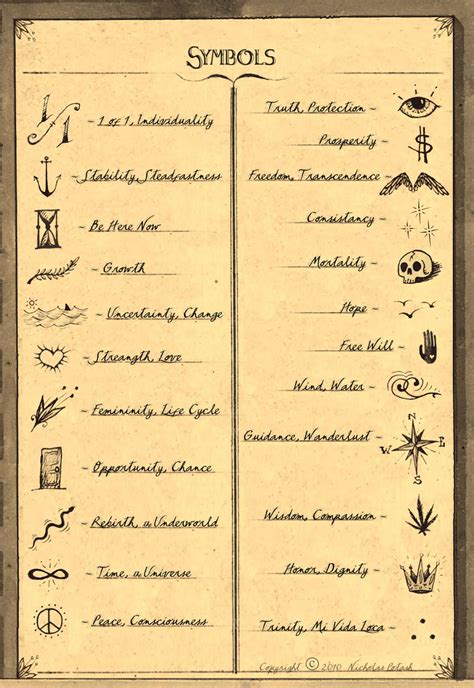 SYMBOLS
1/1
~ 1 of 1, Individuality
~ Stability, Steadfastness
~ Be Here Now
~ Growth
~ Uncertainty, Change
~ Streangth, Love
~ Femininity, Life Cycle
~ Opportunity, Chance
~ Rebirth, Underworld
~ Time, Universe
~ Peace, Consciousness
Truth, Protection ~
Prosperity ~
$
Freedom, Transcendence ~
Consistancy ~
Mortality ~
Hope ~
Free Will ~
Wind, Water ~
N
Guidance, Wanderlust ~
W E
S
Wisdom, Compassion ~
Honor, Dignity ~
Trinity, Mi Vida Loca ~
Copyright © 2010 Nicholas